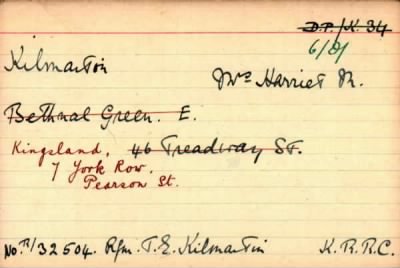 D.P./K. 34
6/01
Kilmartin
Mrs Harriet M.
Bethnal Green. E.
Kingsland, 46 Treadway St.
7 York Row,
Pearson St.
No R/32504. Rfm. T. E. Kilmartin K.R.R.C.